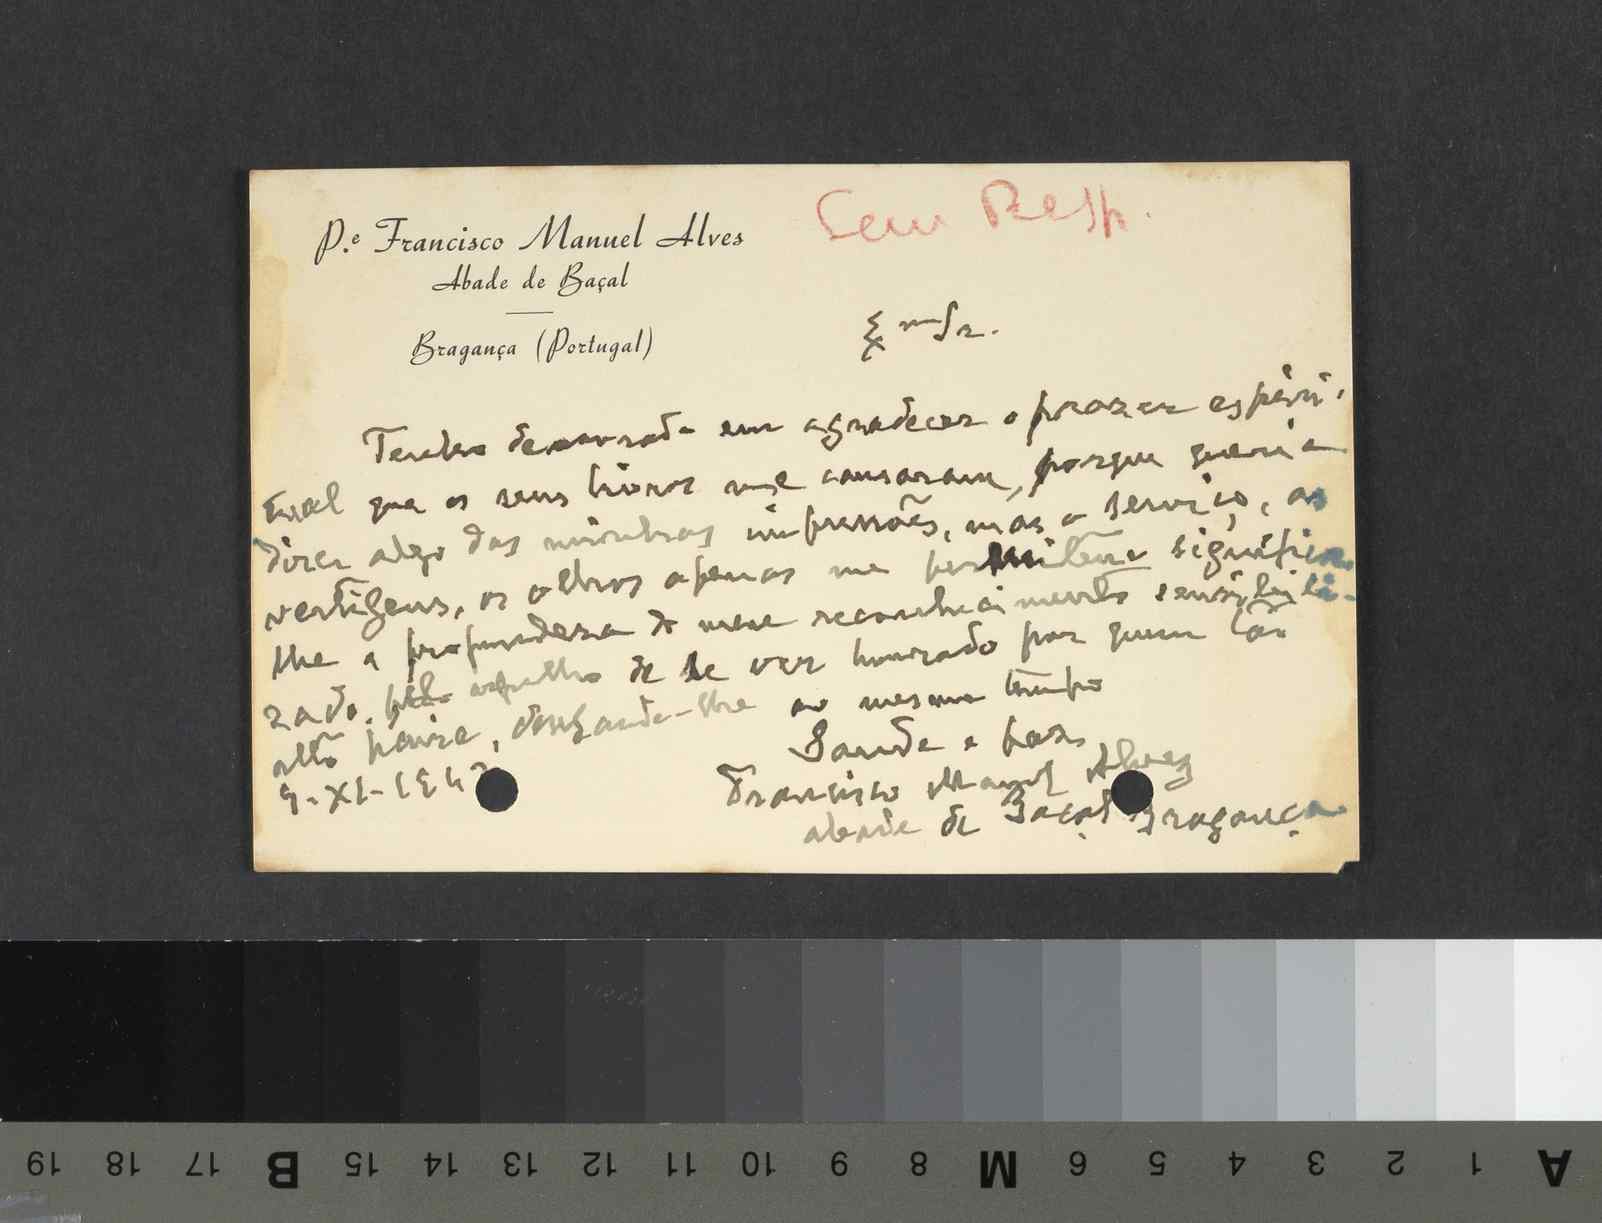 P.e Francisco Manuel Alves
Abade de Baçal
Bragança (Portugal)
Sem Resp.
Exmo Sr.
Tenho demorado em agradecer o prazer espiri-
tual que os seus livros me causaram, porque queria
dizer algo das minhas impressões, mas o serviço, as
vertigens, os olhos apenas me permitem significar-
lhe a profundeza do meu reconhecimento sensibili-
zado, pelo orgulho de se ver honrado por quem tão
alto paira, desejando-lhe ao mesmo tempo
Saude e paz
9-XI-194
Francisco Manuel Alves
abade de Baçal Bragança
19 18 17 B 15 14 13 12 11 10 9 8 M 6 5 4 3 2 1 A